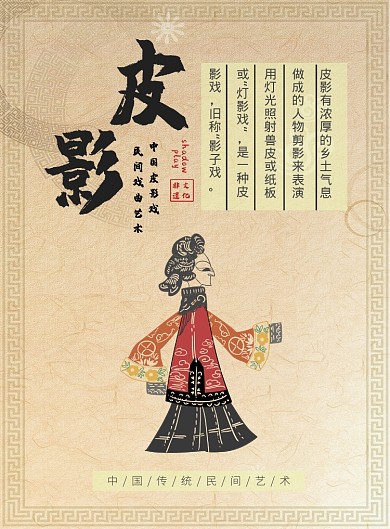 皮影
中国皮影戏
民间戏曲艺术
shadow
play
非遗
文化
皮影有浓厚的乡土气息
做成的人物剪影来表演
用灯光照射兽皮或纸板
或"灯影戏"，是一种皮
影戏，旧称"影子戏。
中/国/传/统/民/间/艺/术